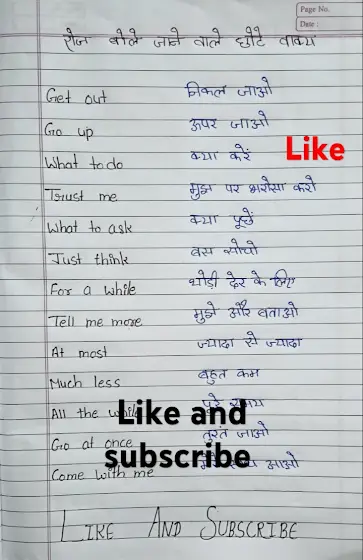 Page No.
Date :
रोज बोले जाने वाले छोटे वाक्य
Get out निकल जाओ
Go up ऊपर जाओ
What to do क्या करें
Like
Trust me मुझ पर भरोसा करो
What to ask क्या पूछें
Just think बस सोचो
For a while थोड़ी देर के लिए
Tell me more मुझे और बताओ
At most ज्यादा से ज्यादा
Much less बहुत कम
All the while पूरे समय
Like and
Go at once तुरंत जाओ
subscribe
Come with me आओ
LIKE AND SUBSCRIBE